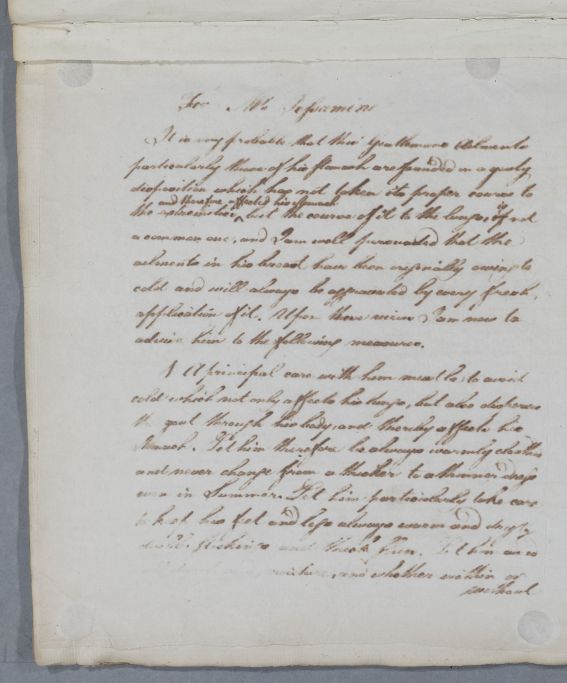 For Mr. Jessamine
It is very probable that this Gentlemans Ailments
particularly those of his stomach are founded in a gouty
disposition which has not taken its proper course to
and therefore affected his stomach
the extremities, but the course of it to the lungs, is not
a common one, and I am well persuaded that the
ailments in his breast have been originally owing to
cold and will always be aggravated by every fresh
application of it. Upon these views I am now to
advise him to the following measures.
1 A principal care with him must be, to avoid
cold which not only affects his lungs, but also disperses
the gout through his body, and thereby affects his
Stomach. Let him therefore be always warmly clothed
and never change from a thicker to a thinner dress
even in Summer. Let him particularly take care
to keep his feet and legs always warm and dry by
stockings and thick Let him
and whether within or
without